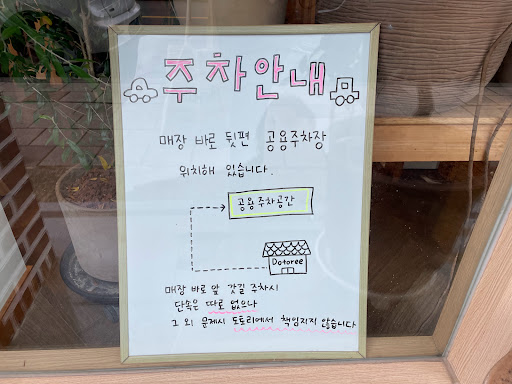 주차안내
매장 바로 뒷편 공용주차장
위치해 있습니다.
공용주차공간
Dotoree
매장 바로 앞 갓길 주차시
단속은 따로 없으나
그 외 문제시 도토리에서 책임지지 않습니다